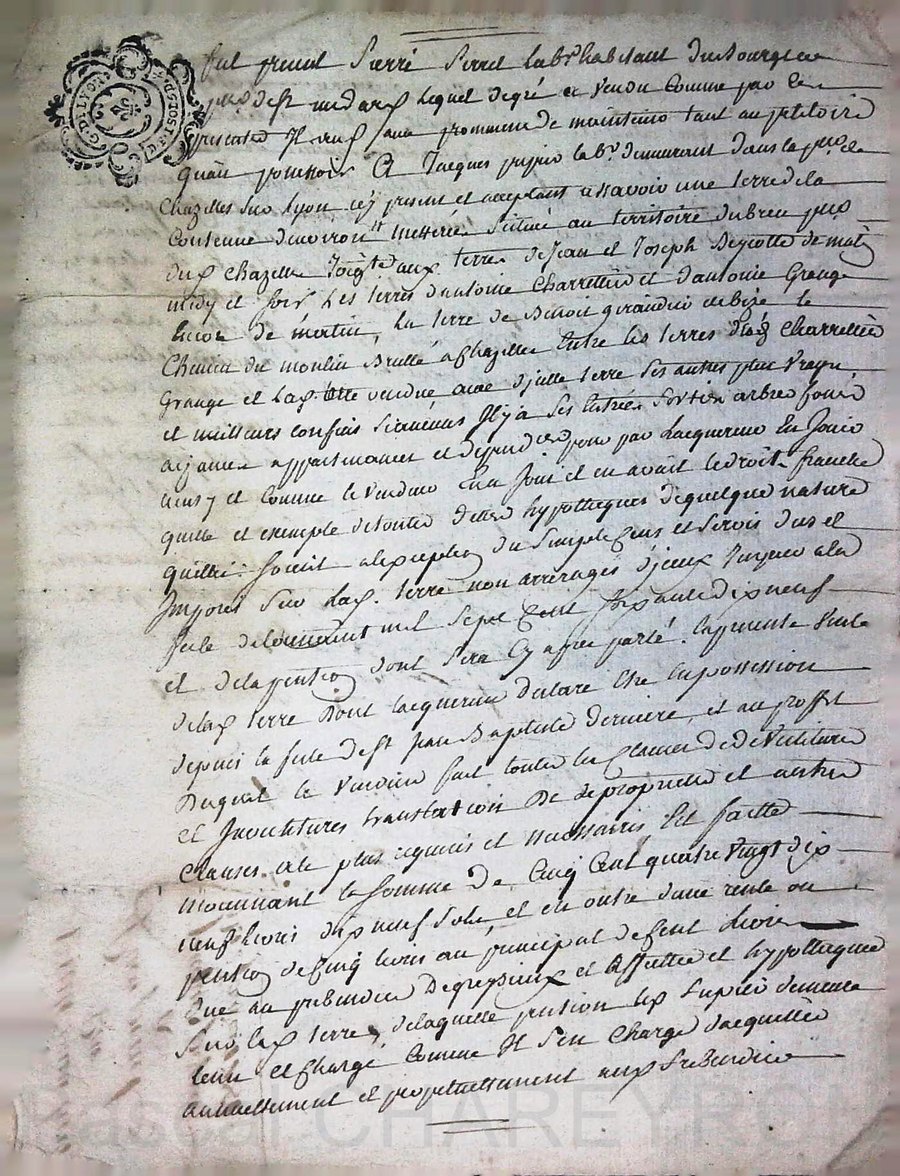 G. D. LYON
fut present Pierre habitant du Bourg et
parsse de St medard lequel de gré a vendu comme par les
presentes Il vend avec promesse de maintenir tant au petitoire
quau possessoir A Jacques pupier labr. demeurant dans la parsse de
Chazelles sur Lyon icy present et acceptant assavoir une terre de la
Contenue denviron metterée située au territoire du breu parsse
dud. Chazelles Joigte aux terres de Jean et Joseph de matin
midy et soir Les terres dantoine Charretier et dantoine Grange
encor de matin, La terre de Benoit girandier de bize le
Chemin du moulin Brullé a Chazelles Entre les terres desd. Charretier
Grange et lad. vendue avec d'jcelle terre ses autres plus vrays
et meilleurs confins sy aucuns Il y a ses Entrées Sorties arbres
aisances appartenances et dependces pour par Lacquereur En Jouir
ainsy et comme le vendeur En a Joui et en avait le droit. franche
quitte et exempte de toutes dettes hypotteques de quelque nature
quelles soient a lexception du Simple Cens et Servis dus et
Imposés Sur lad. terre non arréragés d'jceux Jusques a la
mil sept Cent soixante dix neuf
et de la pention dont sera Cy apres parlé. la presente vente
de lad. terre Dont lacquereur declare Etre En possession
depuis la feste de St Jean Baptiste derniere, et au proffit
Duquel le vendeur fait toutes les Clauses de deVestiture
et Investitures translation De de proprieté et autres
Clauses a ce plus requises et necessaires Est faitte
moiennant la somme de Cinq Cent quatre vingt dix
neuf livres dix neuf sols, et en outre dune rente ou
pention de Cinq livres au principal de Cent livres
due au prebendier De grezieux et affectée et hypottequée
Sur lad. terre, de laquelle pention led. pupier demeure
tenu et Chargé Comme Il s'en Charge dacquitter
annuellement et perpetuellement auxd. prebendier
Pascal CHAREYRON